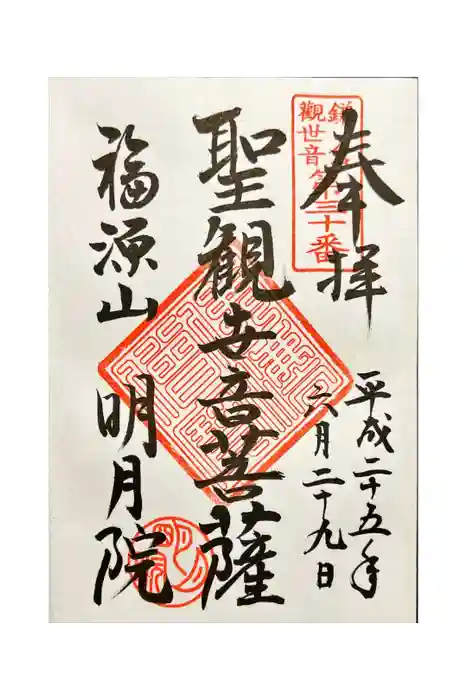 奉拝
平成二十五年
六月二十九日
聖観世音菩薩
福源山 明月院
観世音第三十番